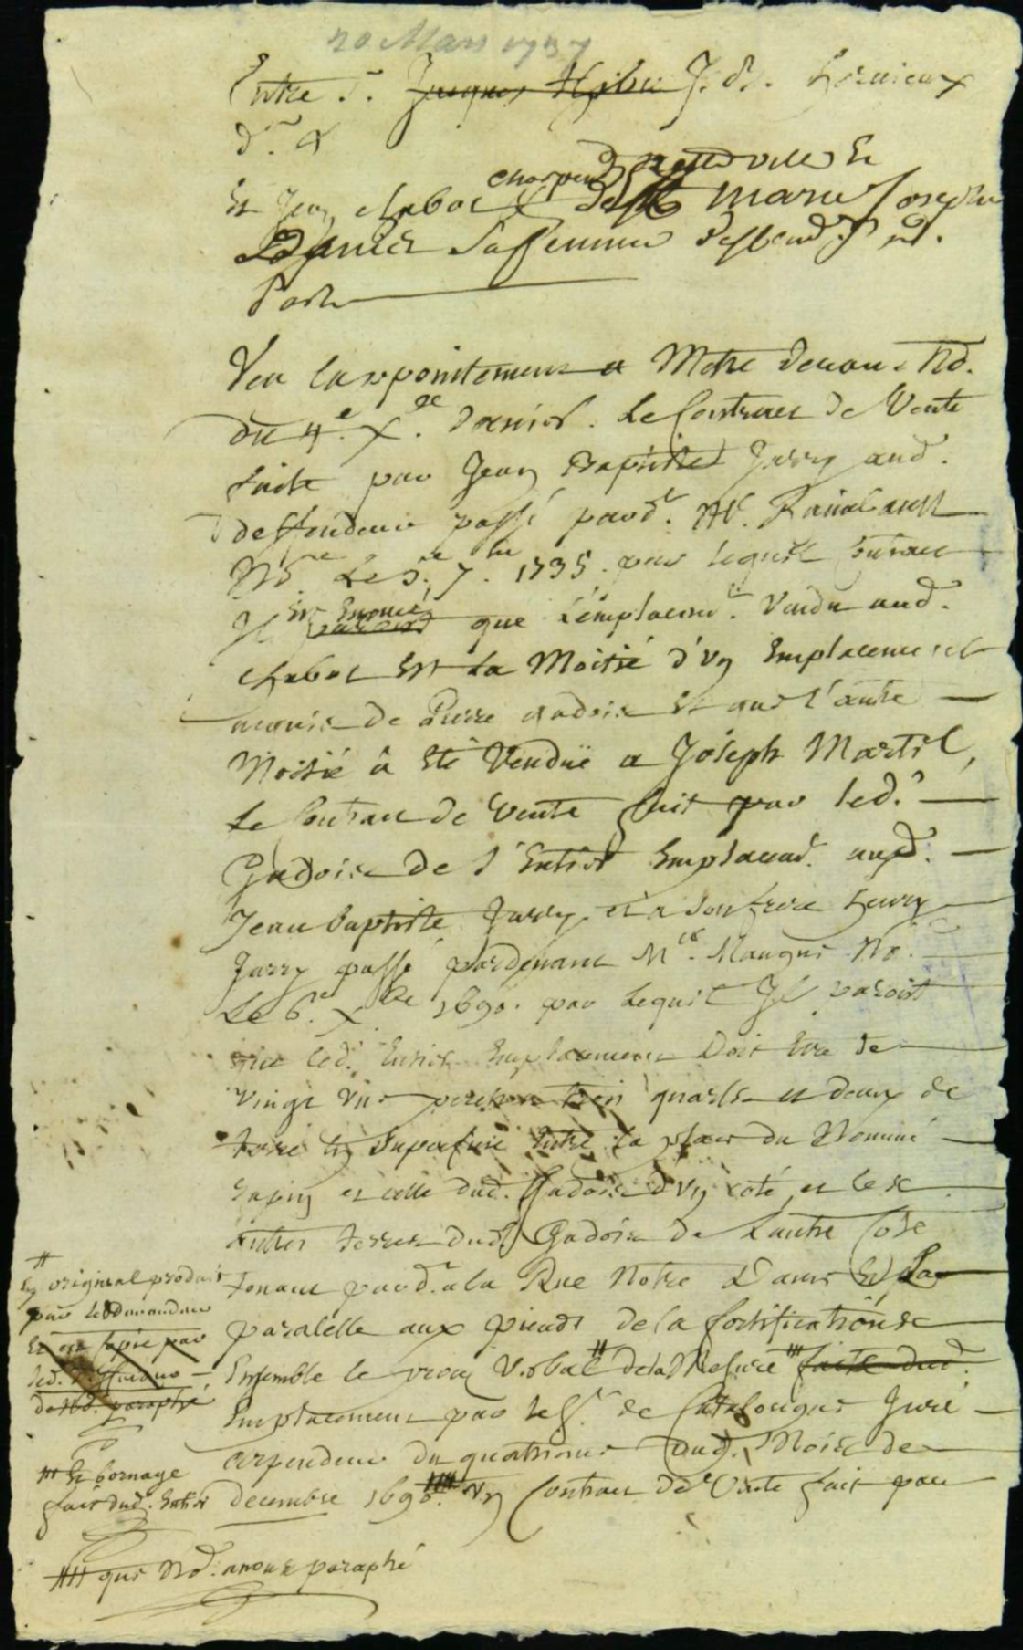 20 Mars 1737
Entre S. Jacques J. Bte. Hervieux
dr. &
charpent de cette ville Et
Et Jean Chabot Marie Joseph
Danier Sa femme deffend. d.
Part
Veu L'appointement a Mettre devant Nd.
du 4e. Xbe. dernier. Le Contract de Vente
faite par Jean Baptiste Jarry aud.
deffendeur passé pard. Me. Raimbault
Nore Le 5e 7bre 1735. par lequel Contract
Il Est Enoncé que L'emplacemt. Vendu aud.
Chabot Est La Moitié d'un Emplacement
acquis de Pierre Gadois Et que l'autre
Moitié a Eté Venduë a Joseph Martel,
Le Contract de Vente fait par led.
Gadois de l'Entier Emplacemt. aud.
Jean baptiste Jarry et a Son frere henry
Jarry passé pardevant Me. Maugue No.
Le 6e. Xbre 1690. par Lequel Il paroist
que led. Entier Emplacement Doit Etre de
Vingt Une perches trois quarts et deux de
terre En Superficie Entre la place du Nommé
Sapin et celle dud. Gadois d'un coté, et les
autres terres dud. Gadois de L'autre Coté
tenant pard. a la Rue Notre Dame Et
paralelle aux pieuds de la fortification
Ensemble le procez Verbal # de la Mesure ### faite dud.
Emplacement par le Sr. de Catalougne Juré
arpenteur du quatrieme dud. Mois de
decembre 1690. #### Un Contract de Vente fait par
#
En original produit
par le Demandeur
Et une copie par
led. deffendeur
de Nd. paraphé
### Et bornage
fait dud. Entier
#### que Nd. avons paraphé